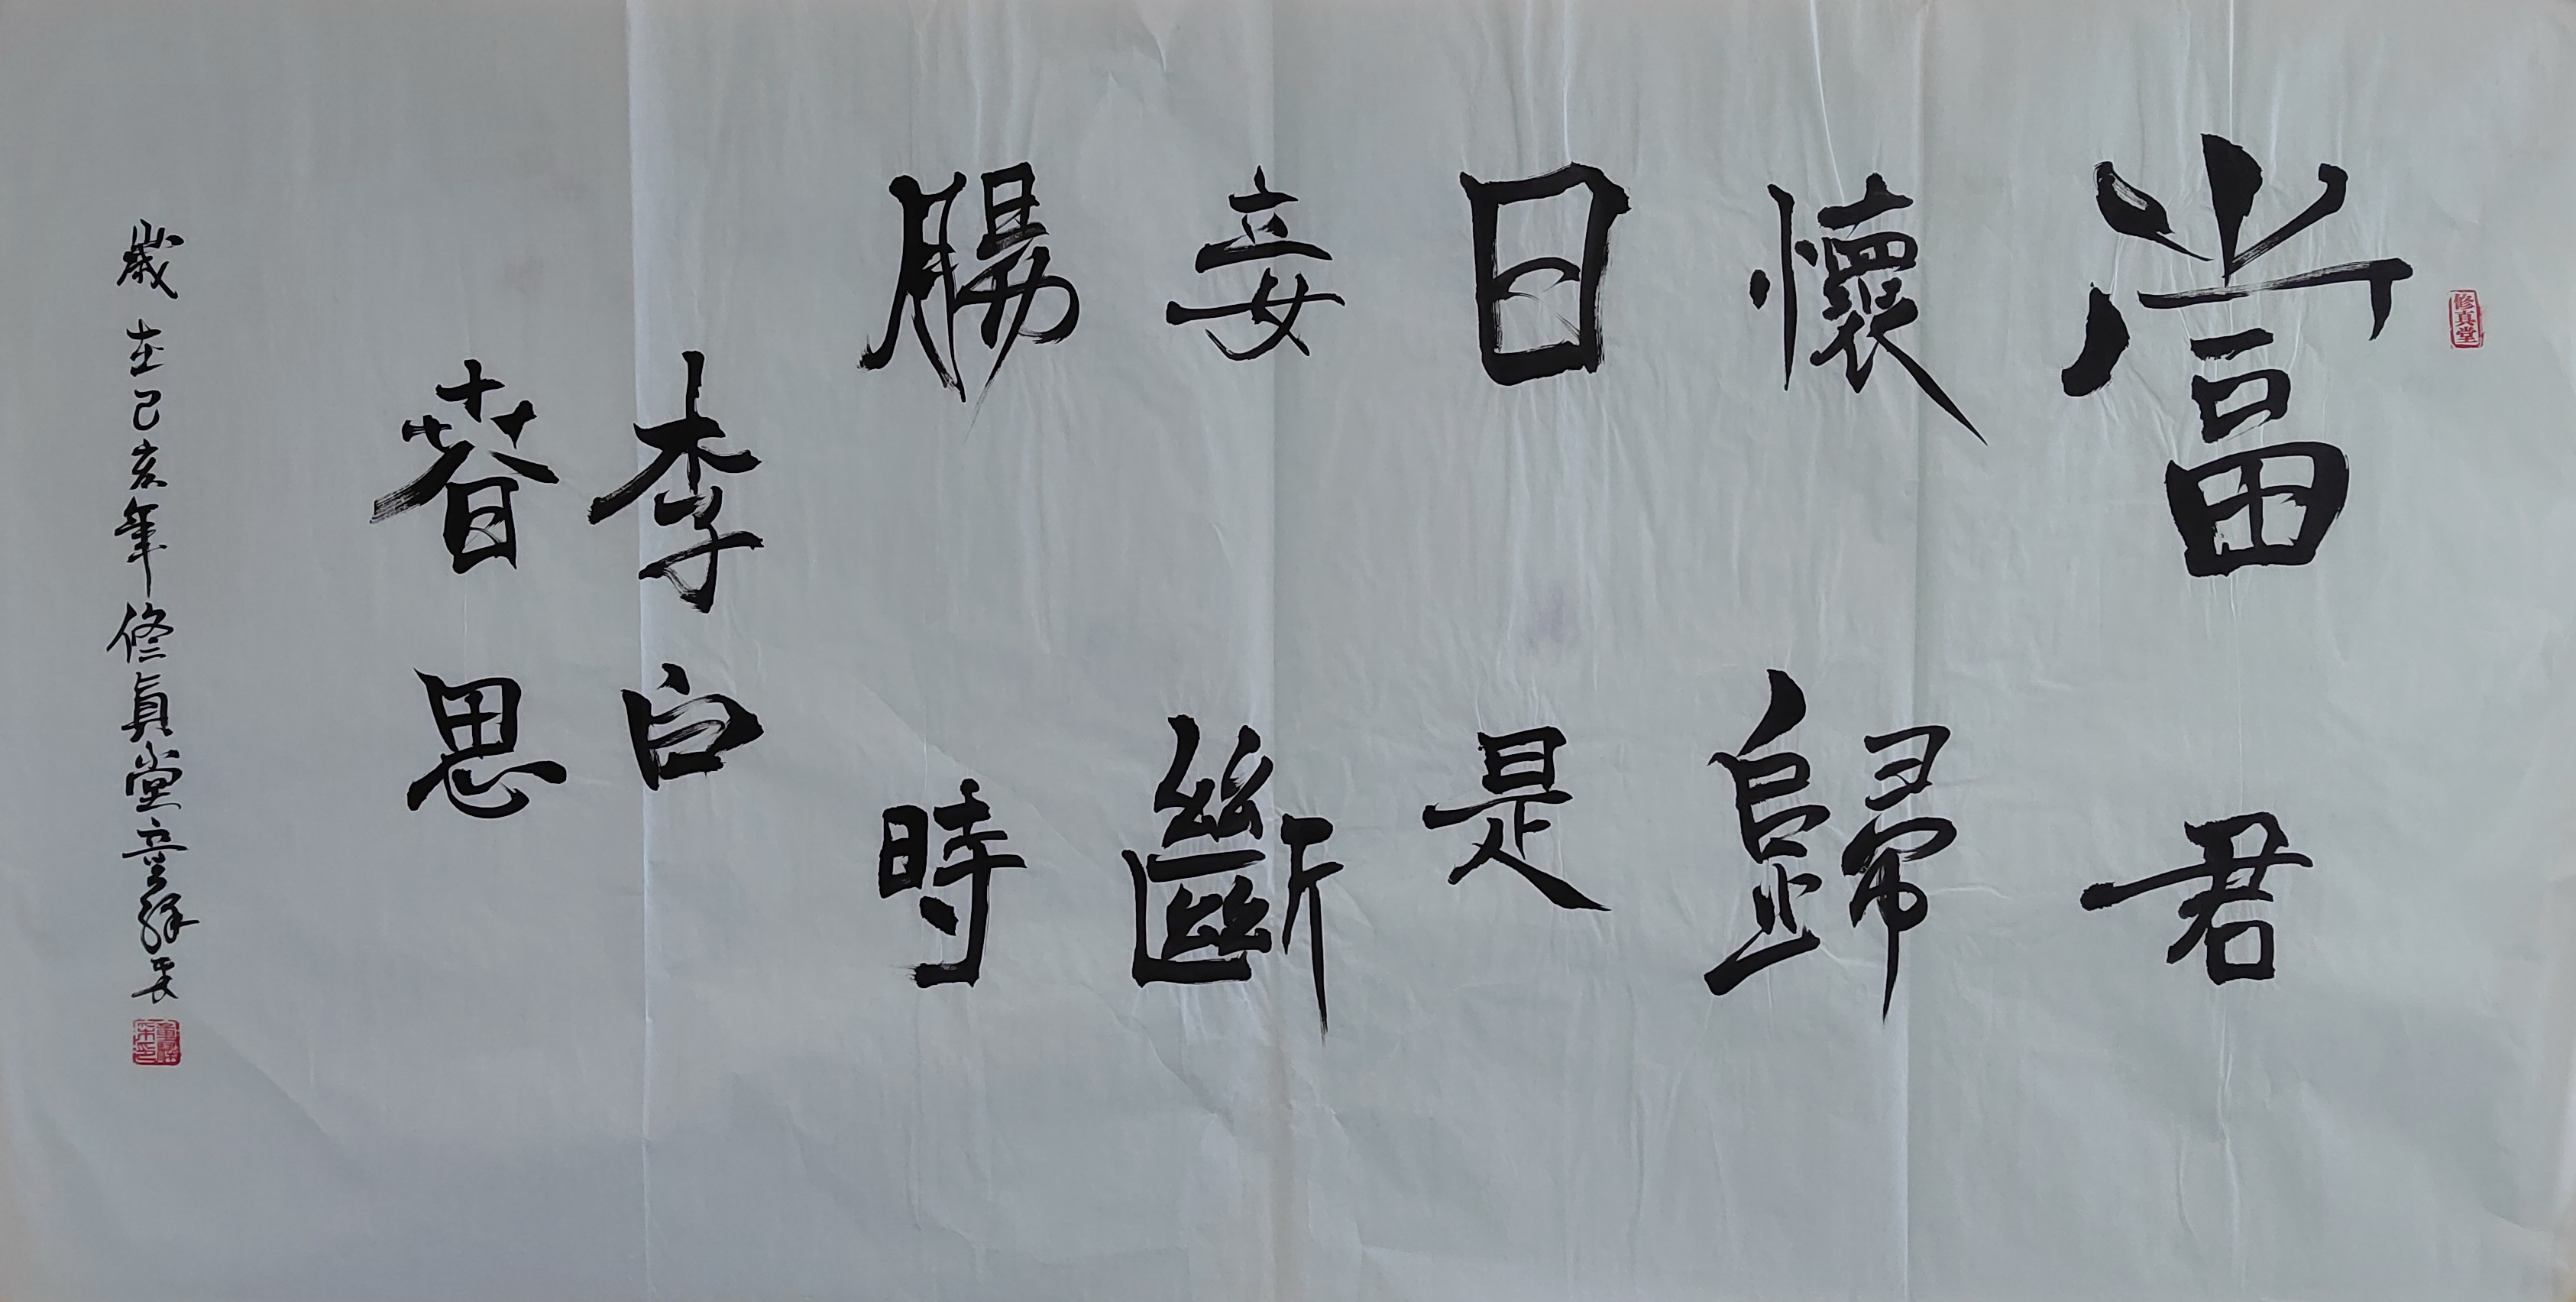 當君
懷歸
日是
妾斷
腸時
李白
春思
歲在己亥年修真堂童
修真堂